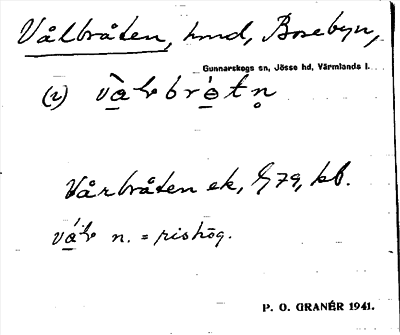 Vålbråten, hmd, Bosebyn,
Gunnarskogs sn, Jösse hd, Värmlands l.
Vårbråten ek, G 79, kb.
n. = rishög.
P. O. GRANÉR 1941.